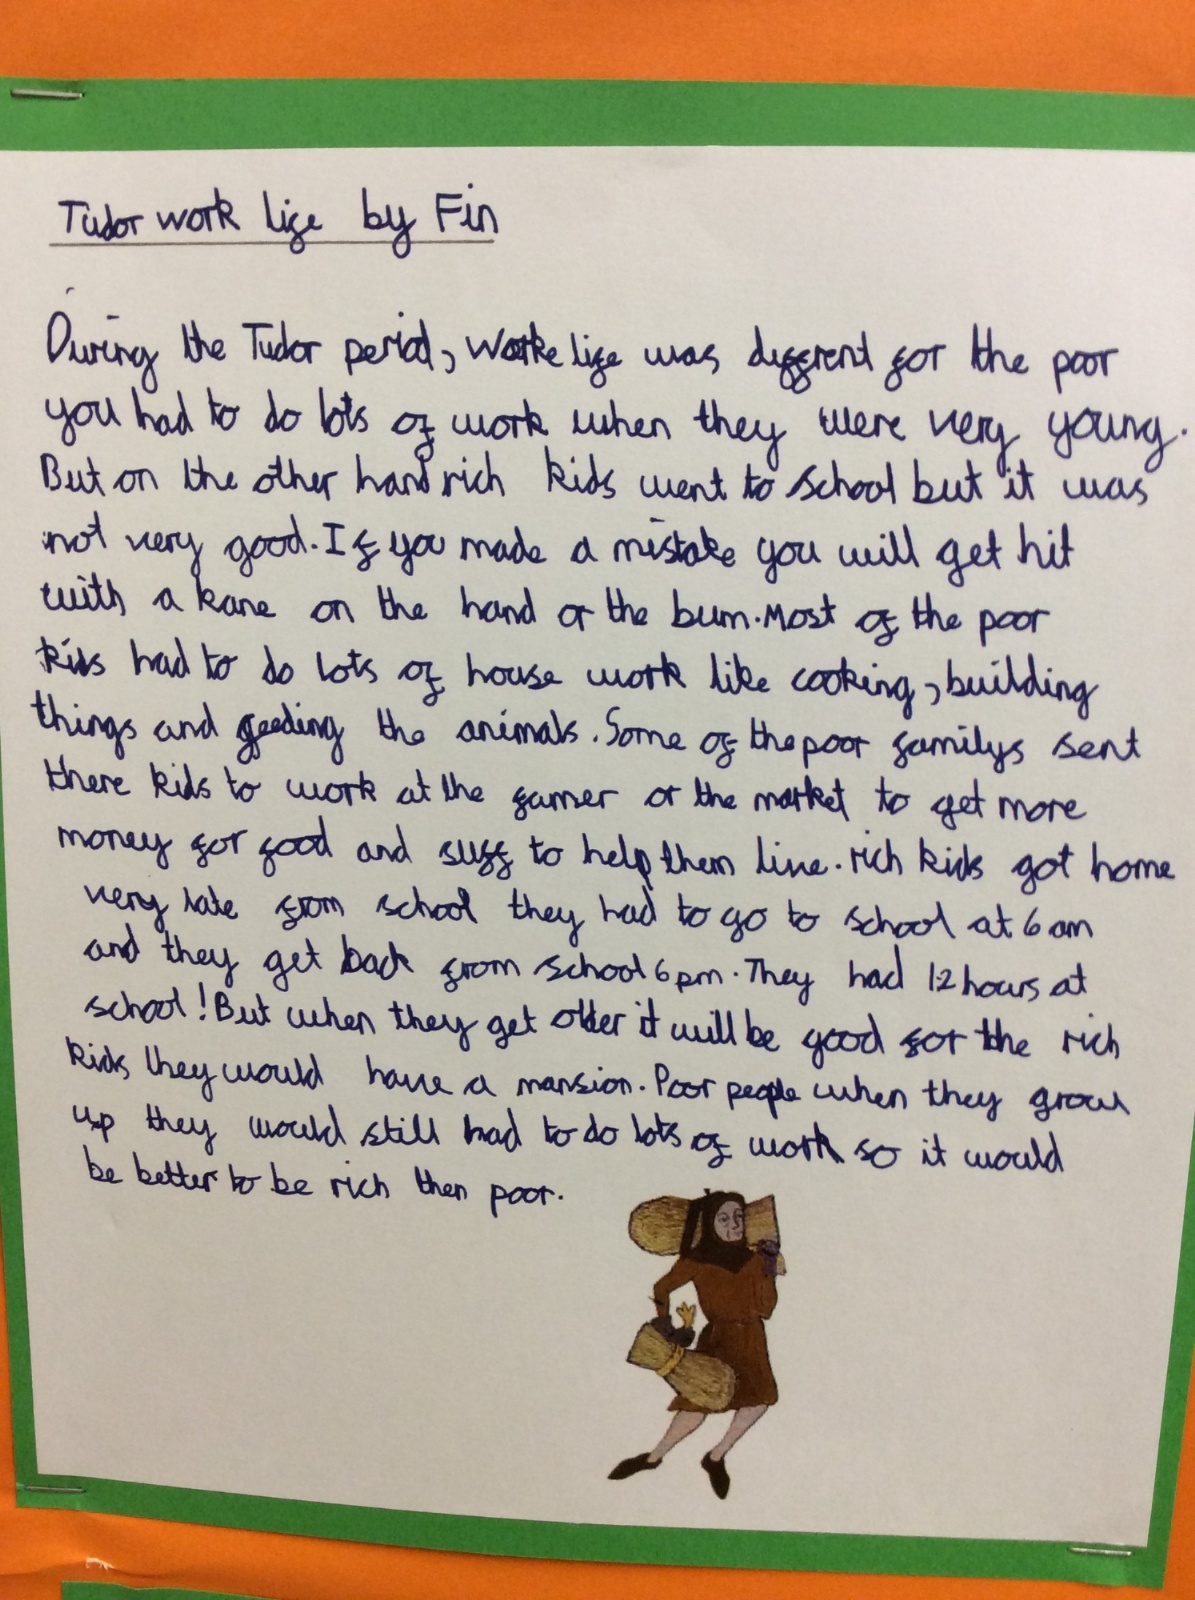 Tudor work life by Fin
During the Tudor period, worke life was different for the poor
you had to do lots of work when they were very young.
But on the other hand rich kids went to school but it was
not very good. If you made a mistake you will get hit
with a kane on the hand or the bum. Most of the poor
kids had to do lots of house work like cooking, building
things and feeding the animals. Some of the poor familys sent
there kids to work at the famer or the market to get more
money for food and suff to help them live. rich kids got home
very late from school they had to go to school at 6 am
and they get back from school 6 pm. They had 12 hours at
school! But when they get older it will be good for the rich
kids they would have a mansion. Poor people when they grow
up they would still had to do lots of work so it would
be better to be rich then poor.